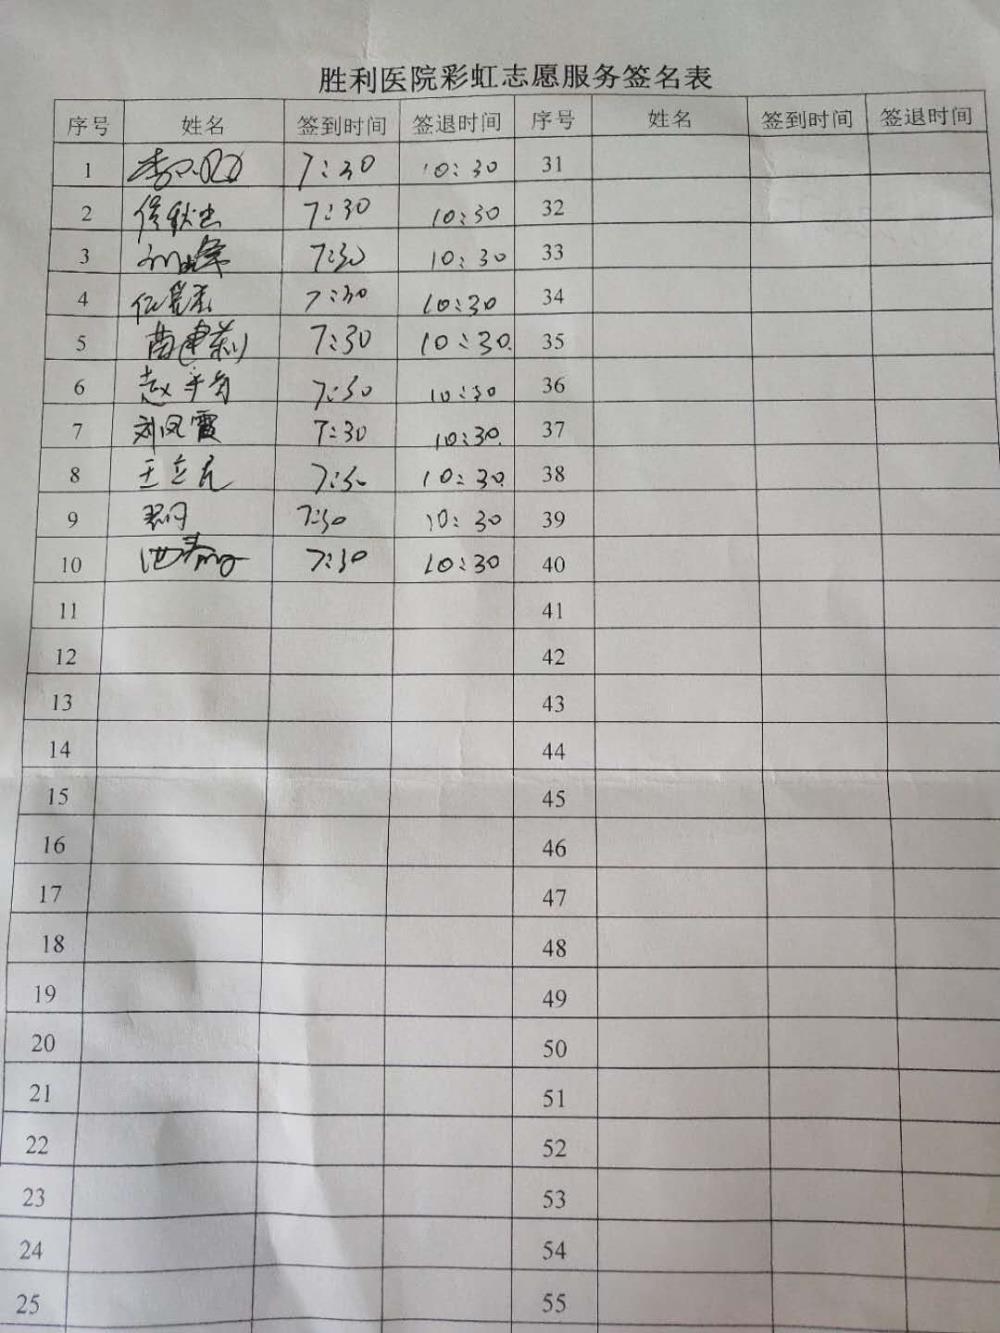 胜利医院彩虹志愿服务签名表
序号 姓名 签到时间 签退时间 序号 姓名 签到时间 签退时间
1 7:30 10:30 31
2 7:30 10:30 32
3 7:30 10:30 33
4 7:30 10:30 34
5 7:30 10:30. 35
6 7:30 10:30 36
7 刘凤霞 7:30 10:30. 37
8 7:30 10:30. 38
9 7:30 10:30 39
10 7:30 10:30 40
11 41
12 42
13 43
14 44
15 45
16 46
17 47
18 48
19 49
20 50
21 51
22 52
23 53
24 54
25 55